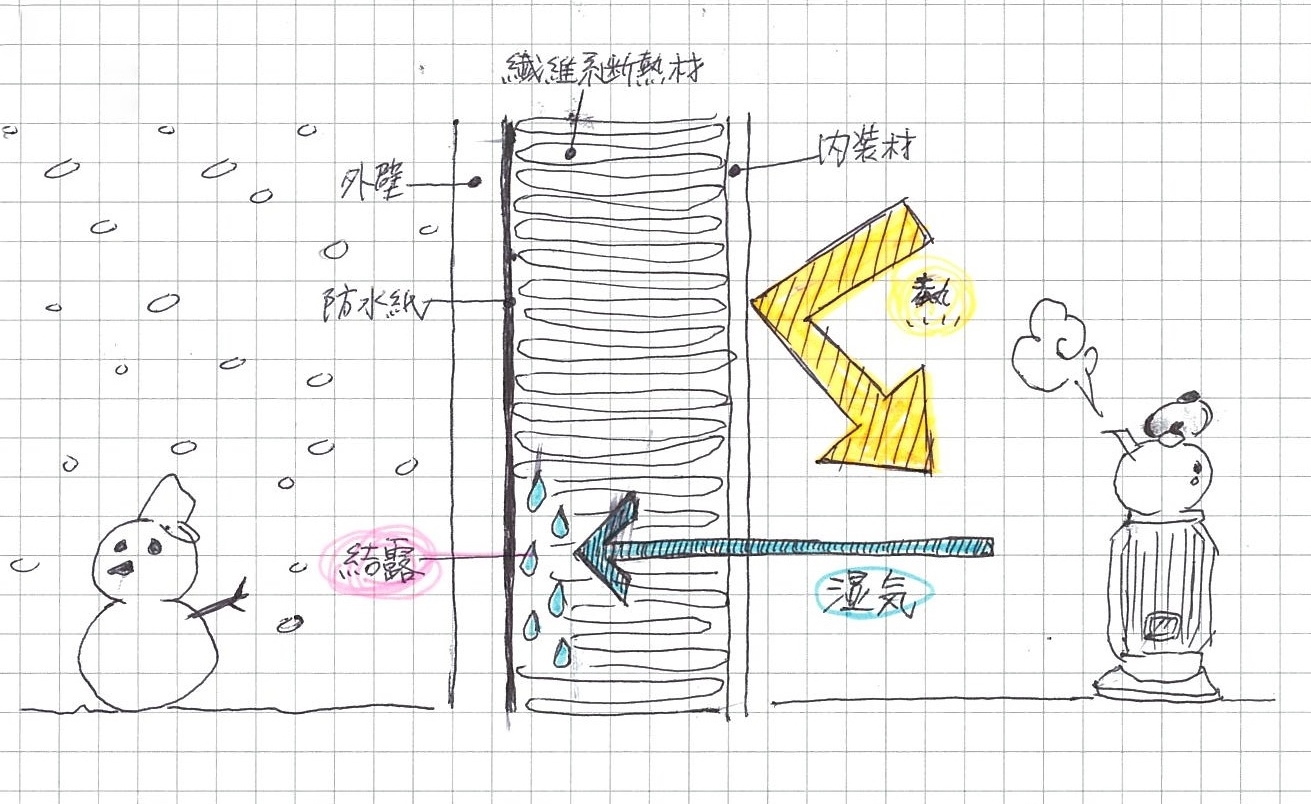 繊維系断熱材
内装材
外壁
防水紙
熱
結露
湿気